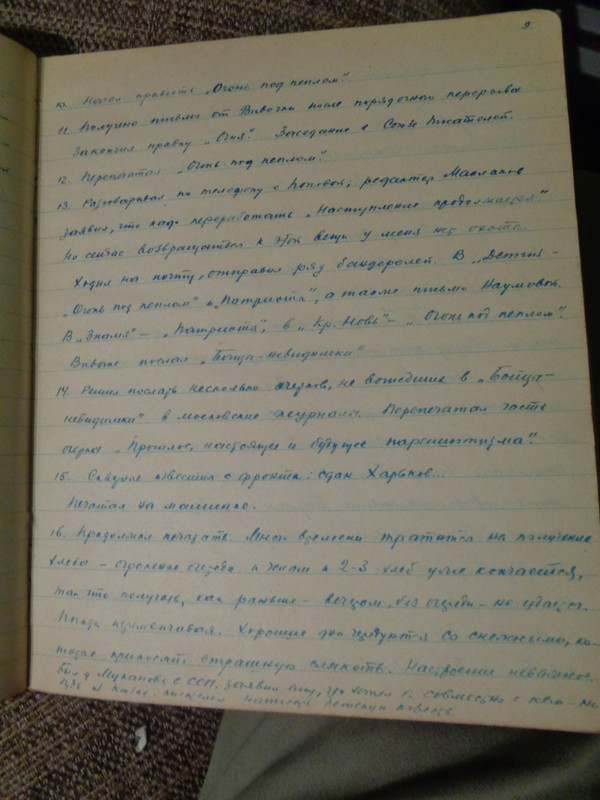 9.
10. Начал править „Огонь под пеплом".
11. Получено письмо от Вивочки после порядочного перерыва
Закончил правку „Огня". Заседание в Союзе Писателей.
12. Перепечатал „Огонь под пеплом".
13. Разговаривал по телефону с Поповой; редактор Масленов
заявил, что надо переработать „Наступление продолжается"
Но сейчас возвращаться к этой вещи у меня нет охоты.
Ходил на почту, отправил ряд бандеролей. В „Детгиз –
„Огонь под пеплом" и „Патриоты", а также письмо Наумовой.
В „Знамя" – „Патриоты", в „Кр. Новь" – „Огонь под пеплом".
Вивочке послал „Бойцы-невидимки"
14. Решил послать несколько очерков, не вошедших в „Бойцы-
невидимки" в московские журналы. Перепечатал часть
очерка „Прошлое, настоящее и будущее парашютизма".
15. Скверные известия с фронта: сдан Харьков...
Печатал на машинке.
16. Продолжал печатать. Много времени тратится на получение
хлеба – огромные очереди и часам к 2-3 хлеб уже кончается,
так что получать, как раньше – вечером, без очереди – не удается.
Погода изменчивая. Хорошие дни чередуются со снежными, ко-
торые приносят страшную слякоть. Настроение неважное.
Был у Муканова в ССП, заявил ему, что хотел бы совместно с кем-ни-
писателем написать детскую повесть